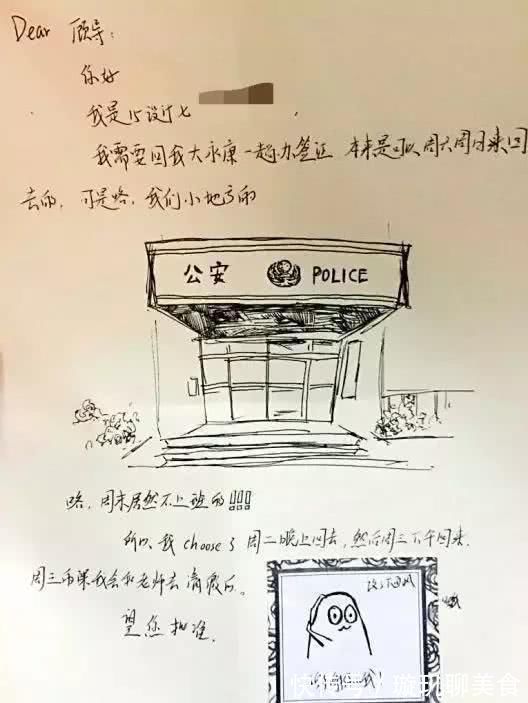 Dear 顾导:
你好
我是15设计七
我需要回我大永康一趟办签证 本来是可以周六周日来回
去的,可是咯,我们小地方的
公安 POLICE
咯,周末居然不上班的!!!
所以我choose了周二晚上回去,然后周三下午回来.
周三的课我会和老师去请假的。
望您批准.
快传号/璇玑聊美食